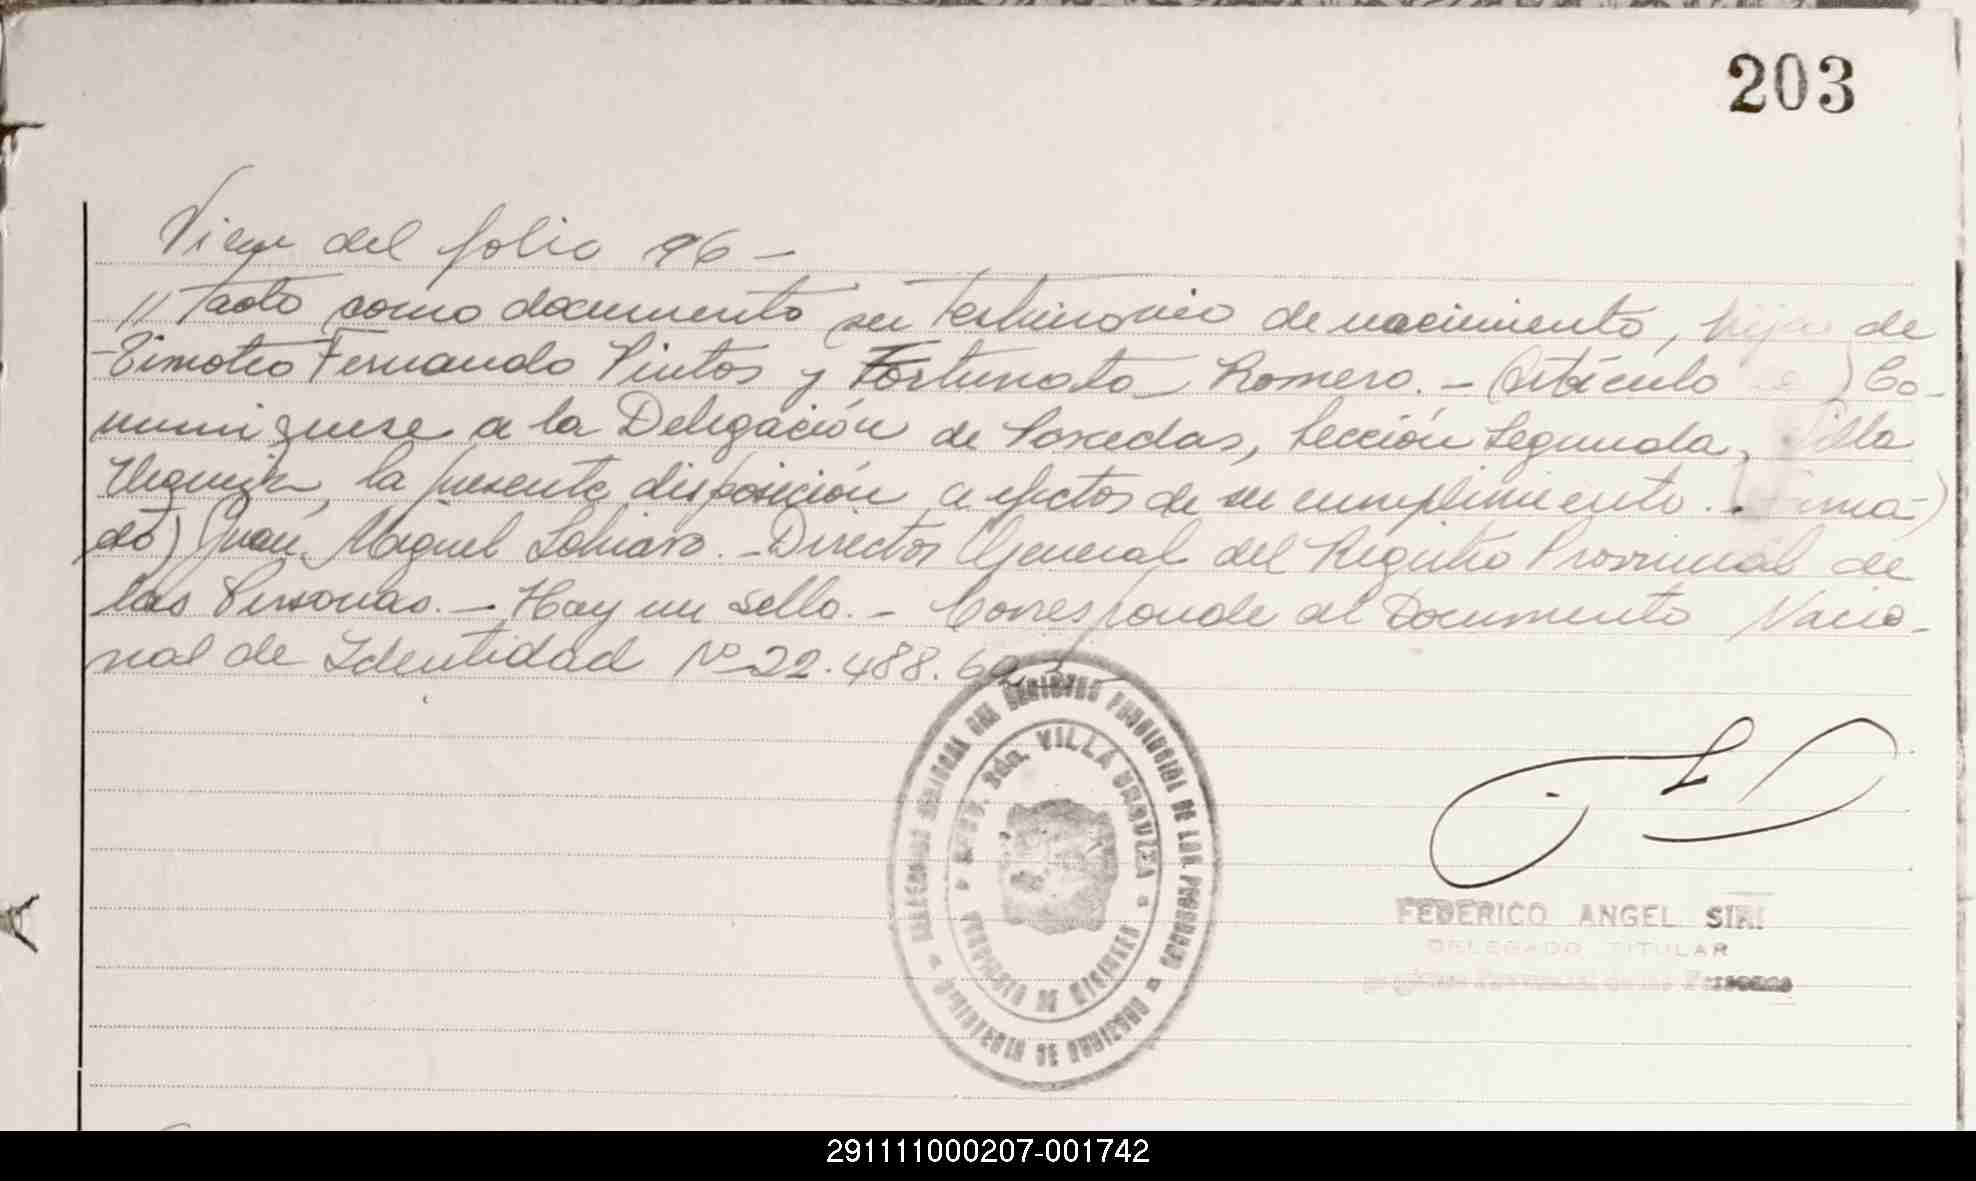 203
Viene del folio 96 -
// tacto como documento su testimonio de nacimiento, hija de
Timoteo Fernando Pintos y Fortunata Romero. - Artículo ) Co-
muníquese a la Delegación de Posadas, Sección Segunda, Villa
Urquiza, la presente disposición a efectos de su cumplimiento. (Firma-
do) Juan Miguel . - Director General del Registro Provincial de
las Personas. - Hay un sello. - Corresponde al Documento Nacio-
nal de Identidad Nº 22.488.
DELEGACION REGISTRO PROVINCIAL DE LAS PERSONAS
SECC. 2da. VILLA URQUIZA
PROVINCIA DE MISIONES
MINISTERIO DE GOBIERNO
FEDERICO ANGEL SIRI
DELEGADO TITULAR
Registro Provincial de las Personas
291111000207-001742